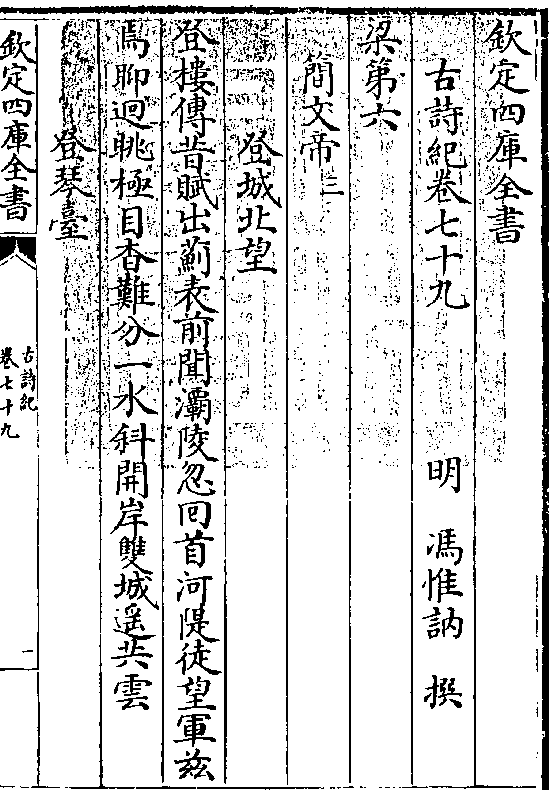 欽定四庫全書
古詩紀卷七十九 明 馮惟訥 撰
梁第六
簡文帝三
登城北望
登樓傳昔賦出薊表前聞灞陵忽回首河隄徒望軍茲
焉聊迥眺極目杳難分一水斜開岸雙城遥共雲
登琴臺
欽定四庫全書
古詩紀
卷七十九
一